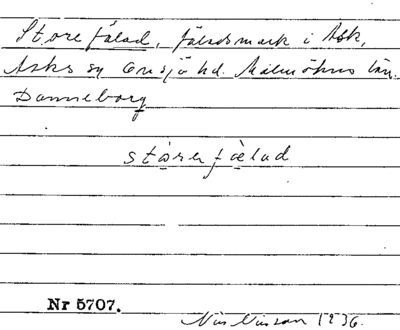 Store fälad, fäladsmark i Ask,
Asks sn Onsjö hd. Malmöhus län.
Danneborg
störe fælad
Nr 5707.
Nils Nilsson 1936.